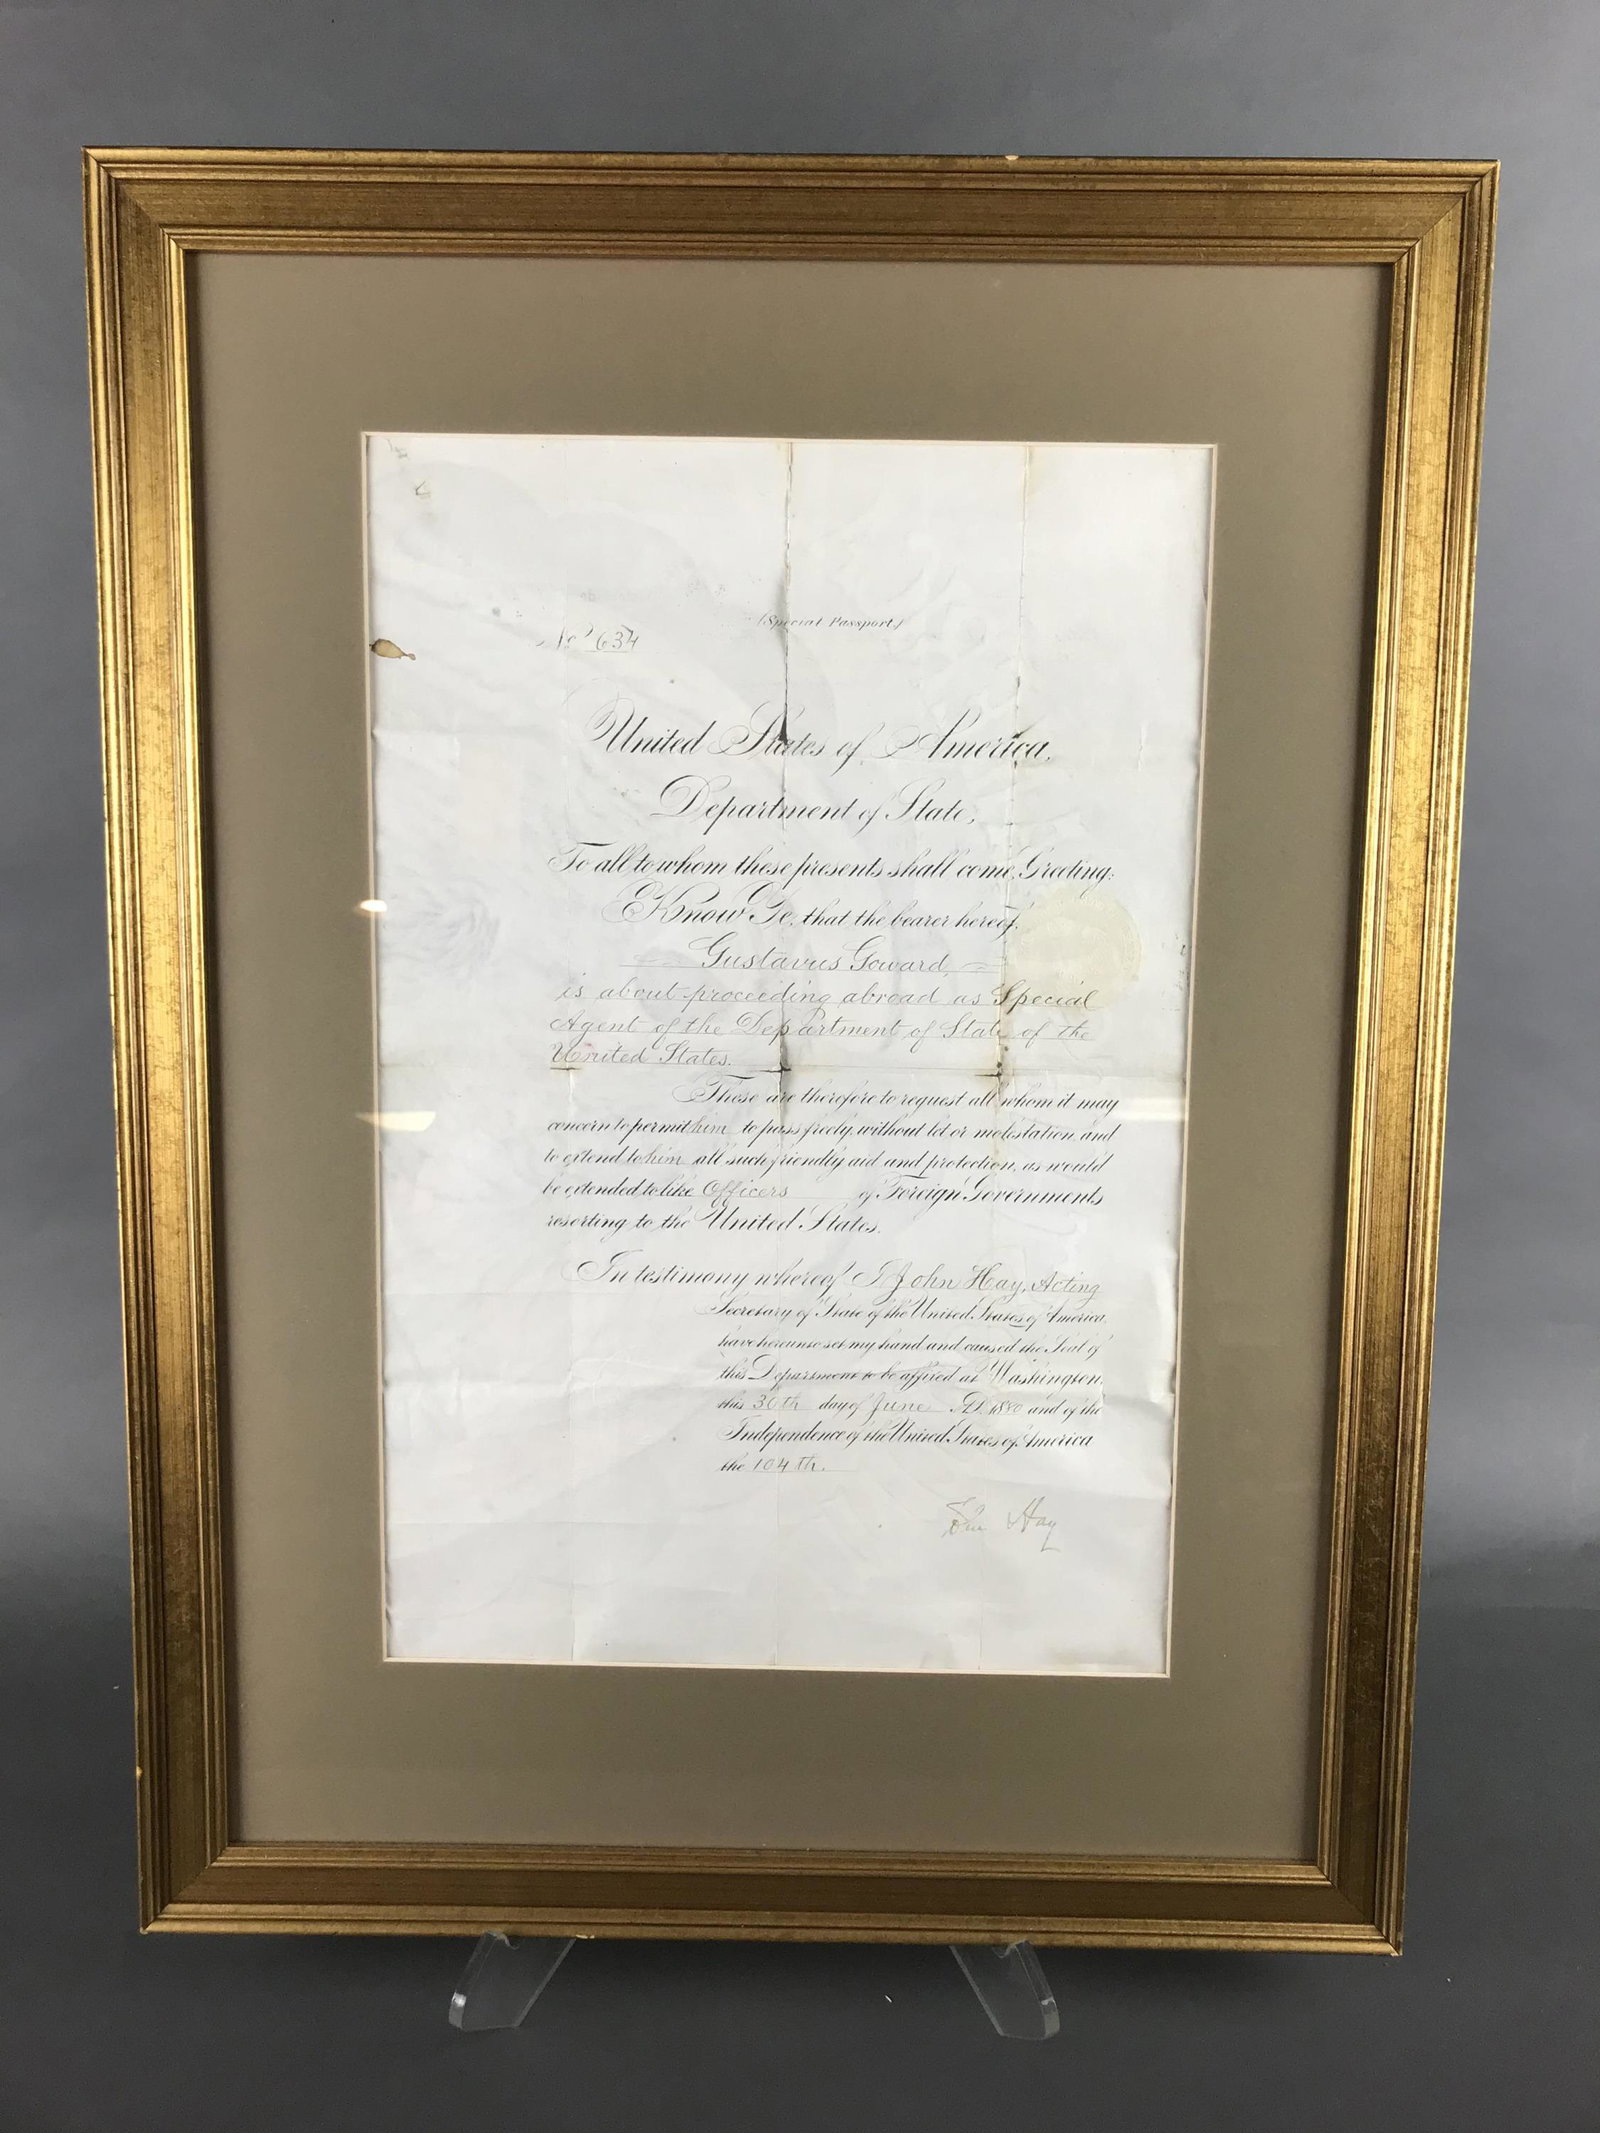 (Special Passport)
No. 634
United States of America,
Department of State,
To all to whom these presents shall come, Greeting:
Know Ye, that the bearer hereof,
Gustavus Goward,
is about proceeding abroad as Special
Agent of the Department of State of the
United States.
These are therefore to request all whom it may
concern to permit him to pass freely, without let or molestation, and
to extend to him all such friendly aid and protection, as would
be extended to like Officers of Foreign Governments
resorting to the United States.
In testimony whereof I, John Hay, Acting
Secretary of State of the United States of America,
have hereunto set my hand and caused the Seal of
this Department to be affixed at Washington,
this 30th day of June A.D. 1880 and of the
Independence of the United States of America
the 104th.
John Hay